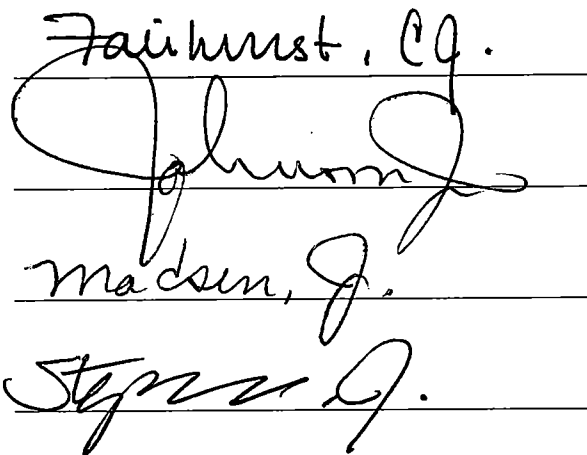 Fairhurst, C.J.
Johnson J.
Madsen, J.
Stephens, J.